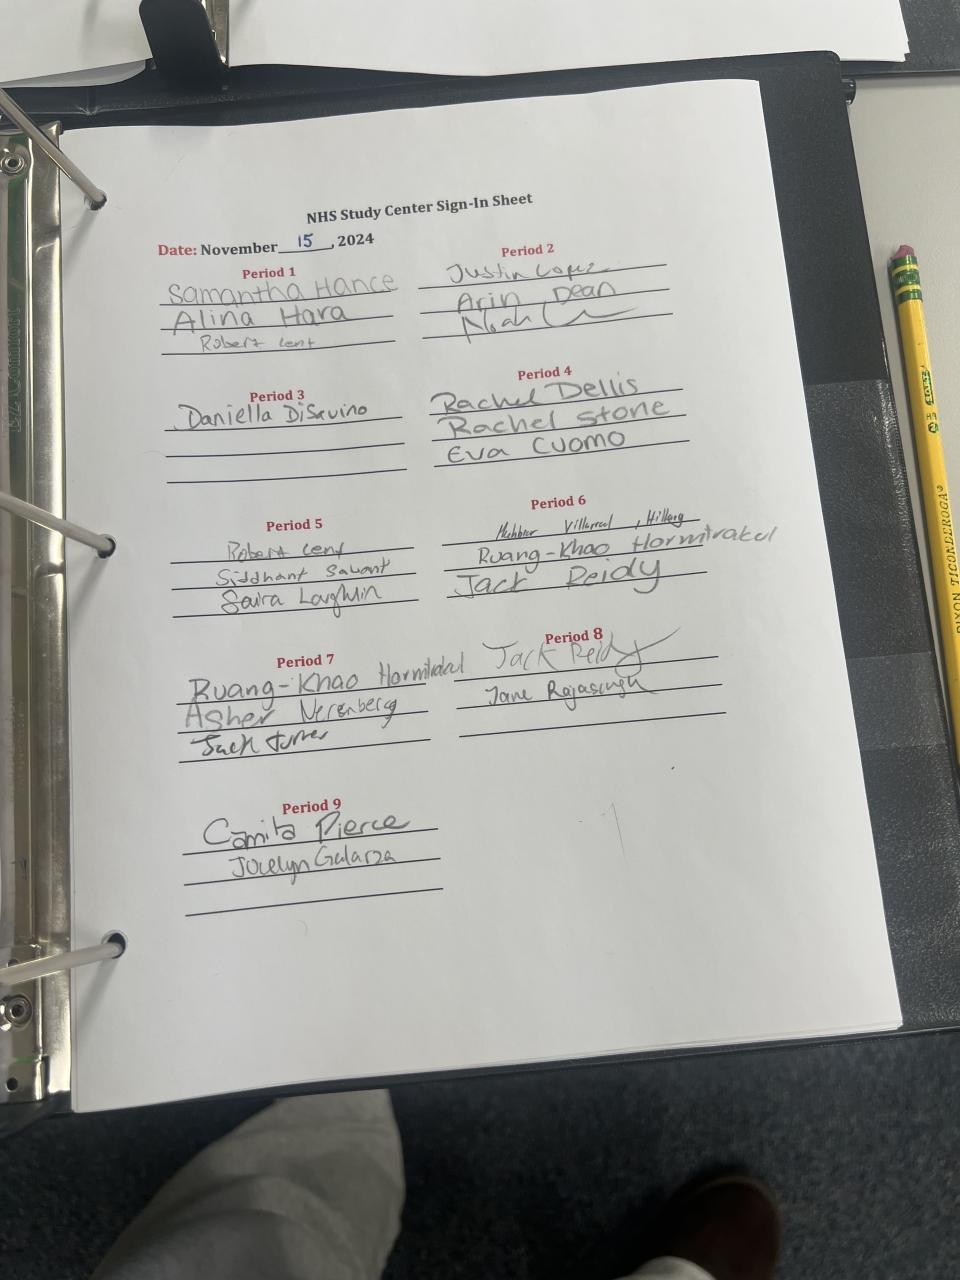 NHS Study Center Sign-In Sheet
Date: November 15, 2024
Period 1
Samantha Hance
Alina Hara
Robert Lent
Period 2
Justin Lopez
Arin Dean
Noah
Period 3
Daniella DiSavino
Period 4
Rachel Dellis
Rachel Stone
Eva Cuomo
Period 5
Robert Lent
Siddhant Sawant
Saira Loughlin
Period 6
Villarreal, Hillary
Ruang-Khao Hormtrakul
Jack Reidy
Period 7
Ruang-Khao Hormtrakul
Asher Nerenberg
Jack Turner
Period 8
Jack Reidy
Jane Rajasingh
Period 9
Camila Pierce
Jocelyn Galarza
DIXON TICONDEROGA®